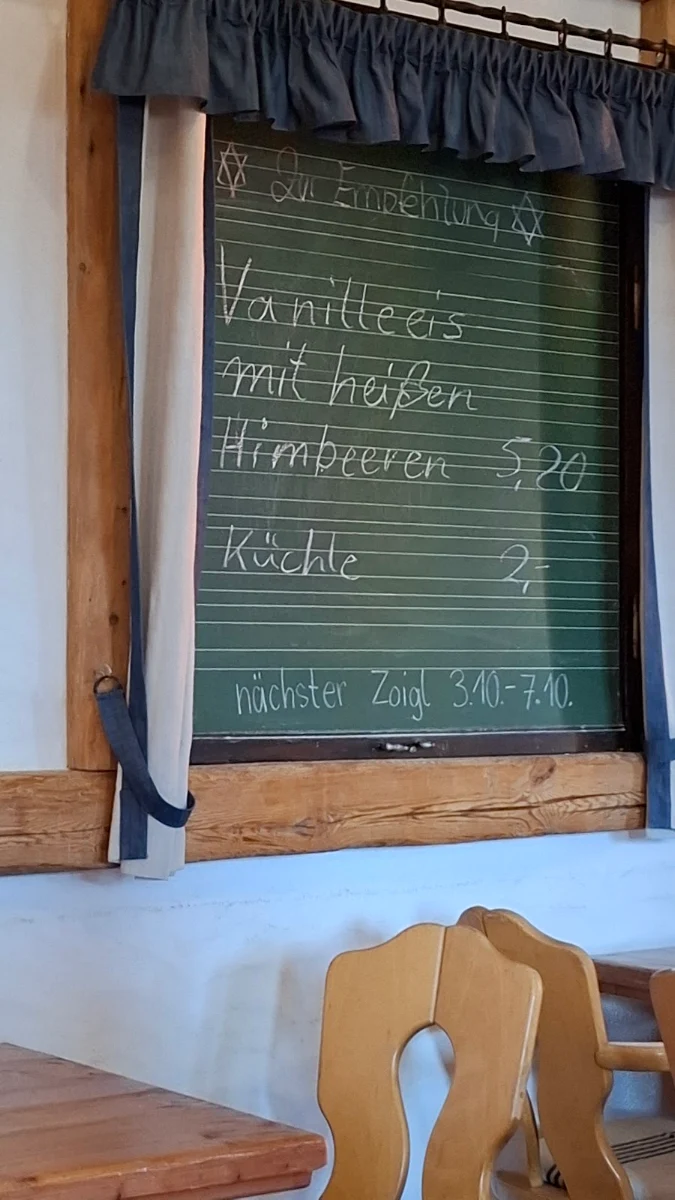 ✡ Zur Empfehlung ✡
Vanilleeis
mit heißen
Himbeeren 5,20
Küchle 2,-
nächster Zoigl 3.10.-7.10.